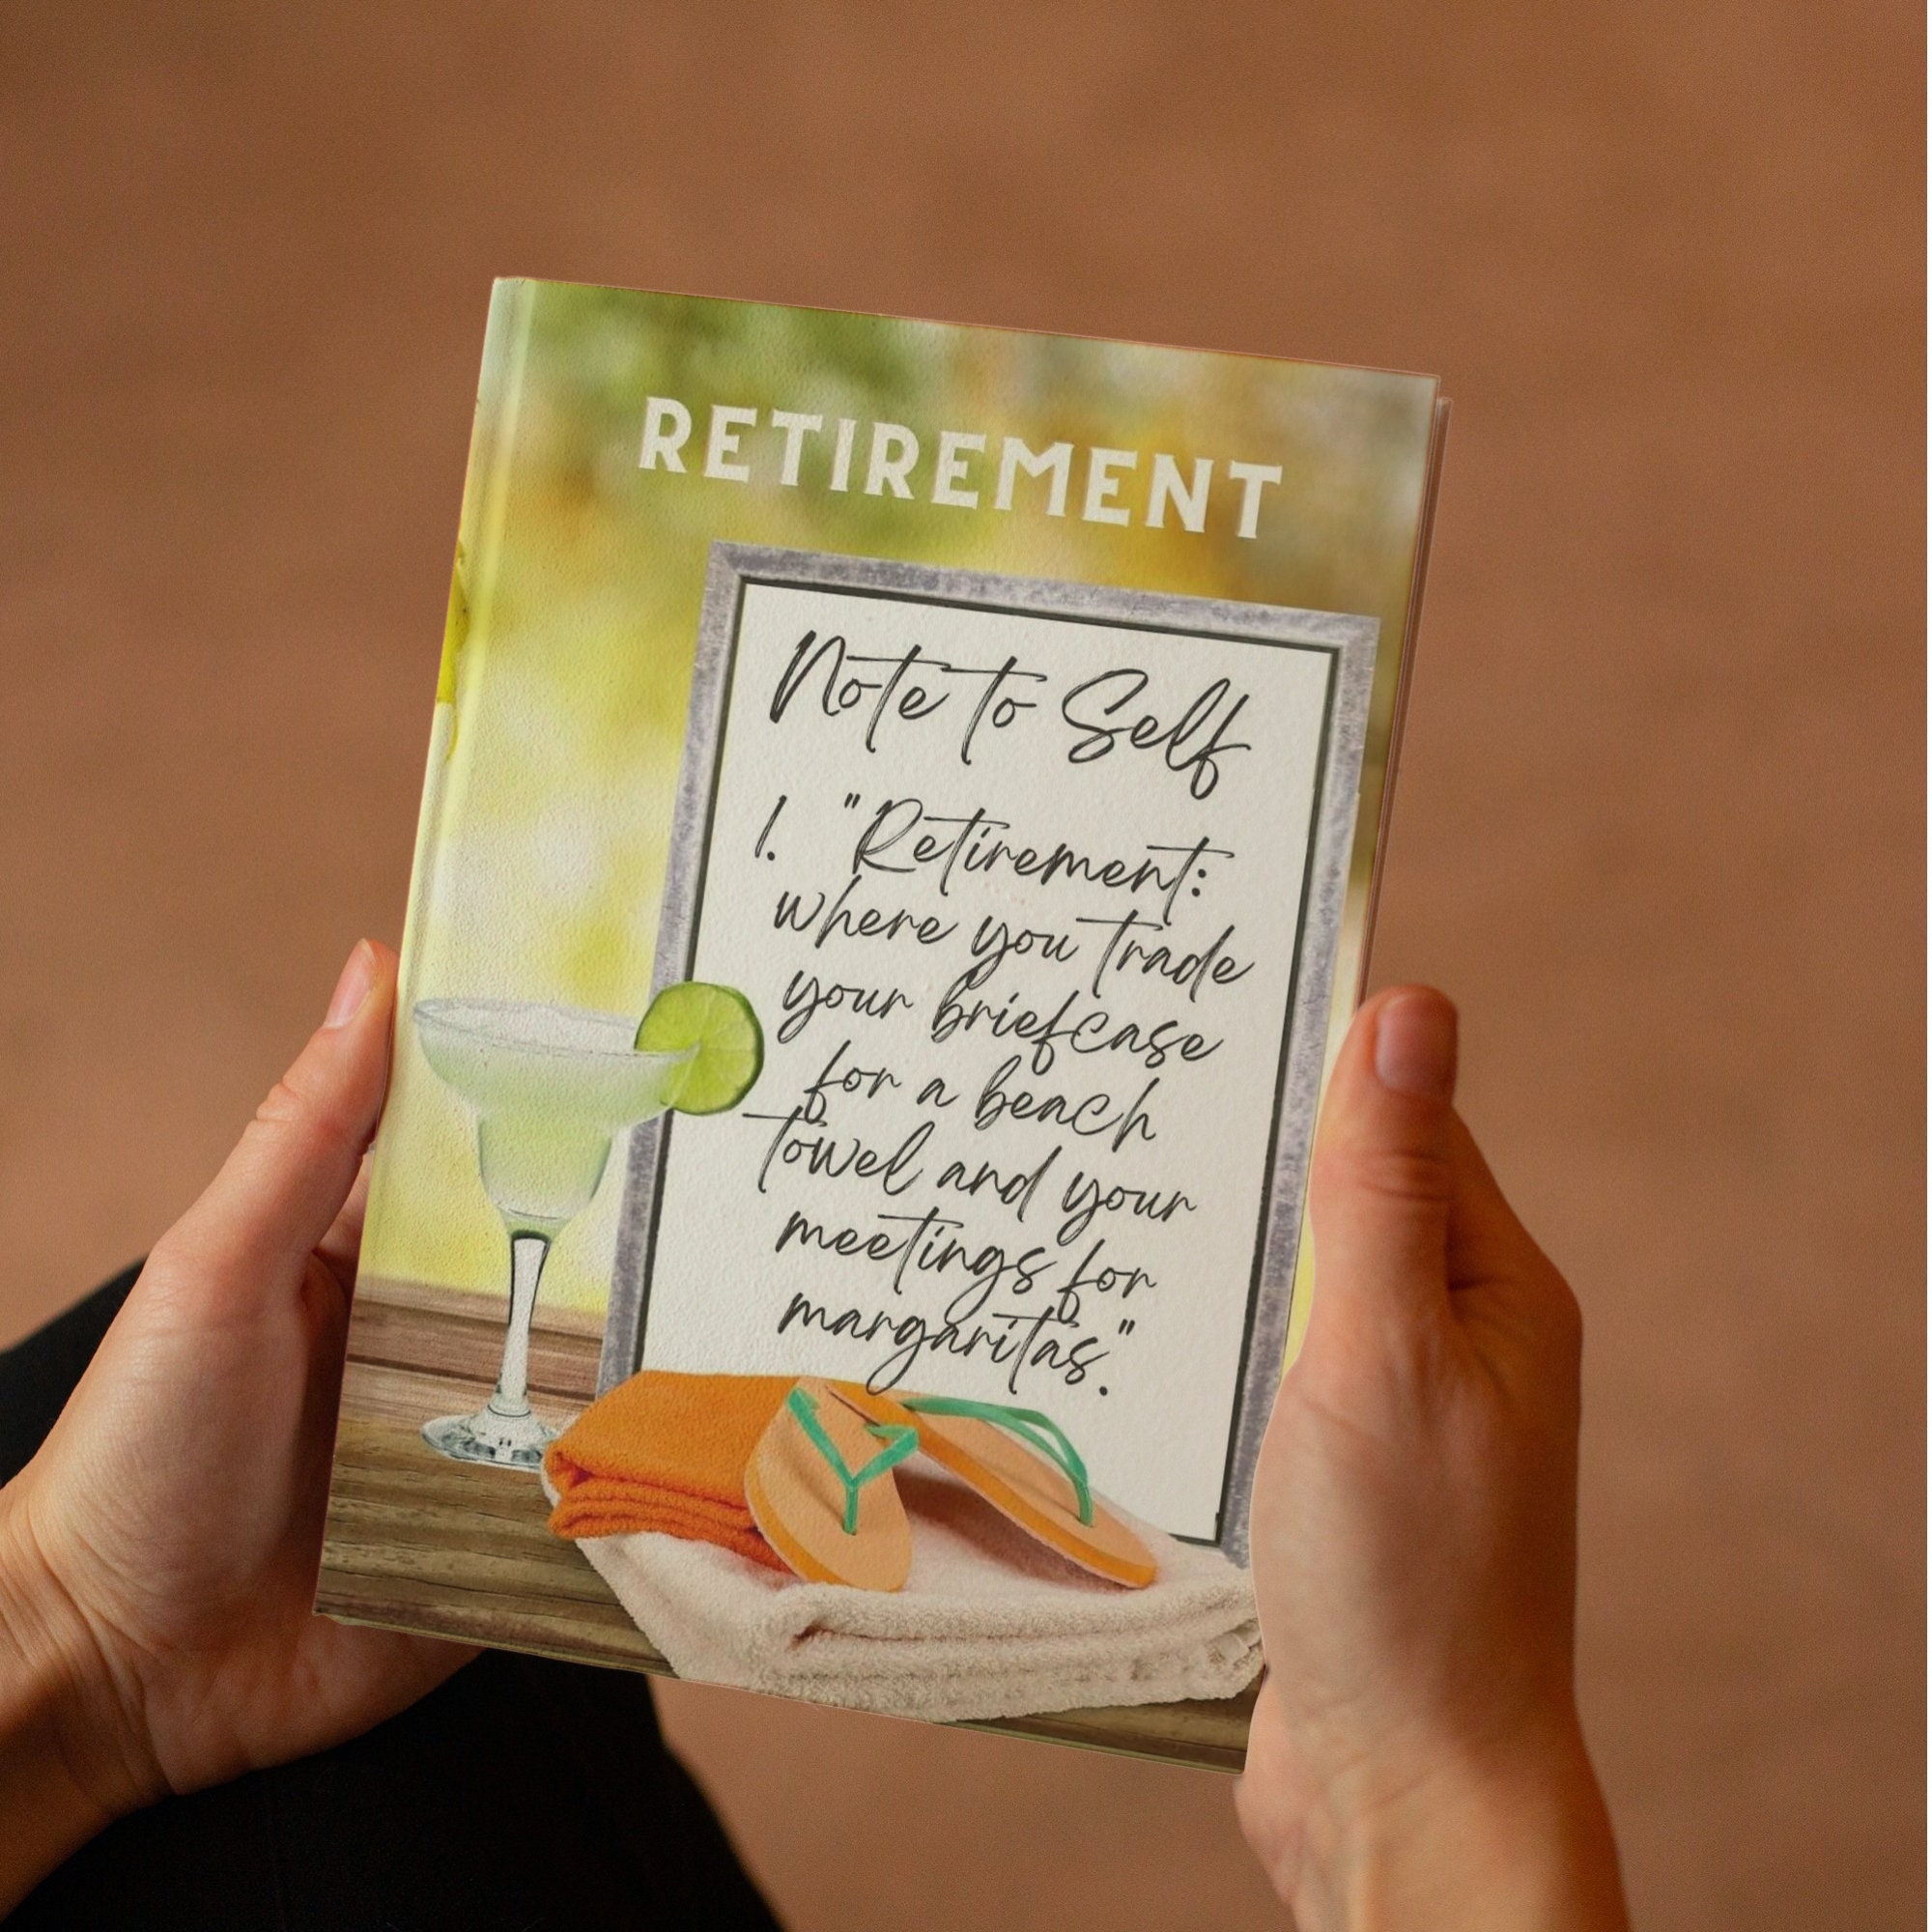 RETIREMENT
Note to Self
1. "Retirement:
where you trade
your briefcase
for a beach
towel and your
meetings for
margaritas."